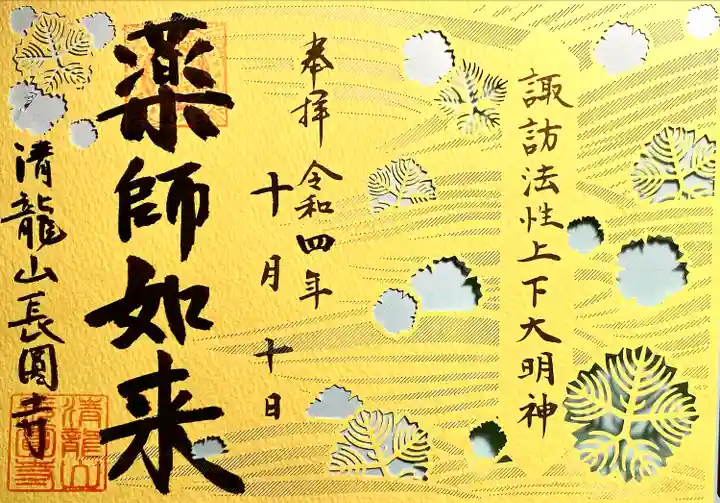 諏訪法性上下大明神
奉拝 令和四年
十月 十日
薬師如来
清龍山長圓寺
清龍山